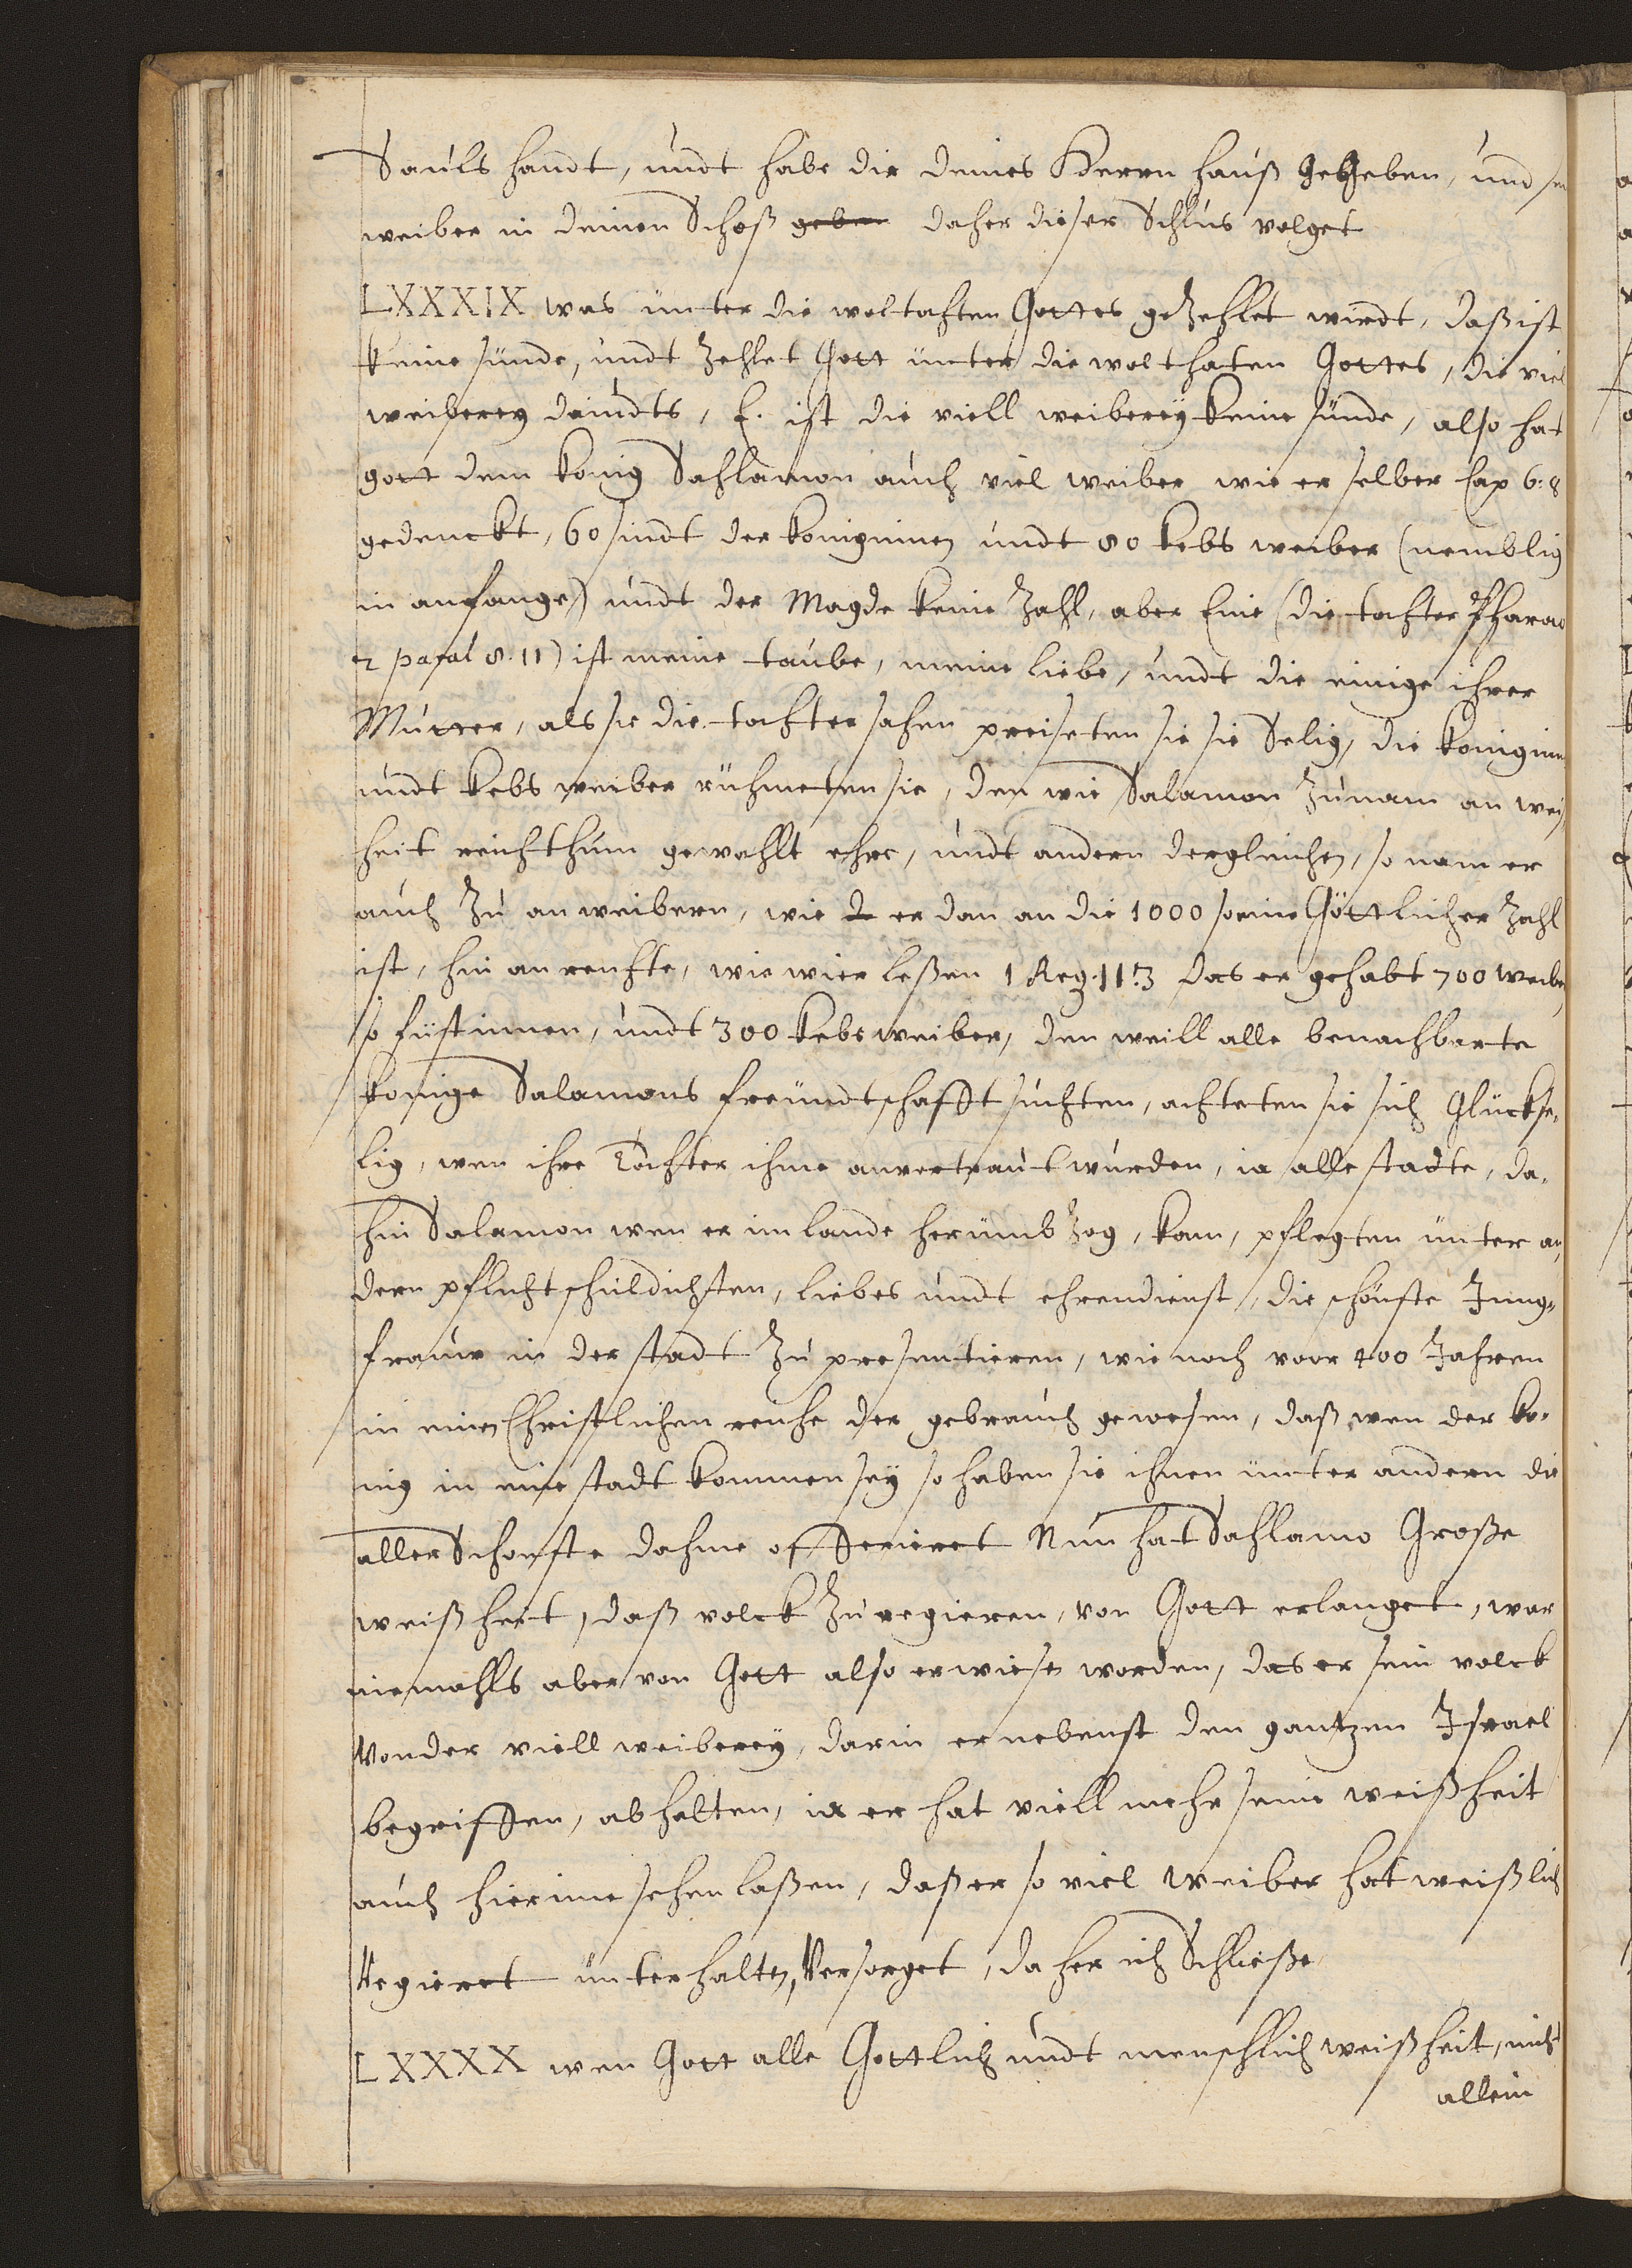 Sauls handt, undt habe dir deines Herrn hauß gegeben, und
weiber in deinen Schoß geben daher dieser Schlus volget
LXXXIX was unter die woltahten Gottes gezehlet wirdt, daß ist
keine sünde, undt zehlet Gott unter die wolthaten Gottes, die viel
weiberey davidts, E. ist die viell weiberey keine sünde, also hat
gott dem konig Sahlamon auch viel weiber wie er selber Cap 6:8
gedenckt, 60 sindt der koniginnen undt 80 kebs weiber (nemblig
in anfange) undt der Magde keine zahl, aber Eine (die tochter Pharao
2 paral 8.11) ist meine taube, meine liebe, undt die einige ihrer
Mutter, als sie die tochter sahen preiseten sie sie Selig, die koniginn
undt kebs weiber rühmeten sie, den wie Salamon zunam an weiß
heit reichthum gewahlt ehre, undt andern dergleichen, so nam er
auch zu an weibern, wie er dan an die 1000 so eine Göttlicher zahl
ist, hin an reichte, wie wier leßen 1 Reg. 11:3 das er gehabt 700 weiber
so fürstinnen, undt 300 kebs weiber, den weill alle benachbarte
konige Salamons freundtschafft suchten, achteten sie sich Glückse,
lig, wen ihre Töchter ihme anvertraut wurden, ia alle stadte, da,
hin Salamon wen er im lande herümb zog, kam, pflegten unter an,
dern pflichtschuldichsten, liebes undt ehrendienst, die schönste Jung,
frauw in der stadt zu presentieren, wie noch voor 400 Jahren
in einen Christlichen reiche der gebrauch gewesen, daß wen der ko,
nig in eine stadt kommen sey so haben sie ihnen unter andern die
aller Schonste dahme offerieret Nun hat Sahlamo Große
weißheit, daß volck zu regieren, von Gott erlanget, war
niemahls aber von Gott also erwiesen worden, das er sein volck
Von der viell weiberey, darin er nebenst den gantzen Israel
begriffen, abhalten, ia er hat viell mehr seine weißheit
auch hierinne sehen laßen, daß er so viel weiber hat weißlich
Regieret unterhalten, Versorget, daher ich Schließe
LXXXX wen Gott alle Gottlich undt menschlich weißheit, nicht
allein